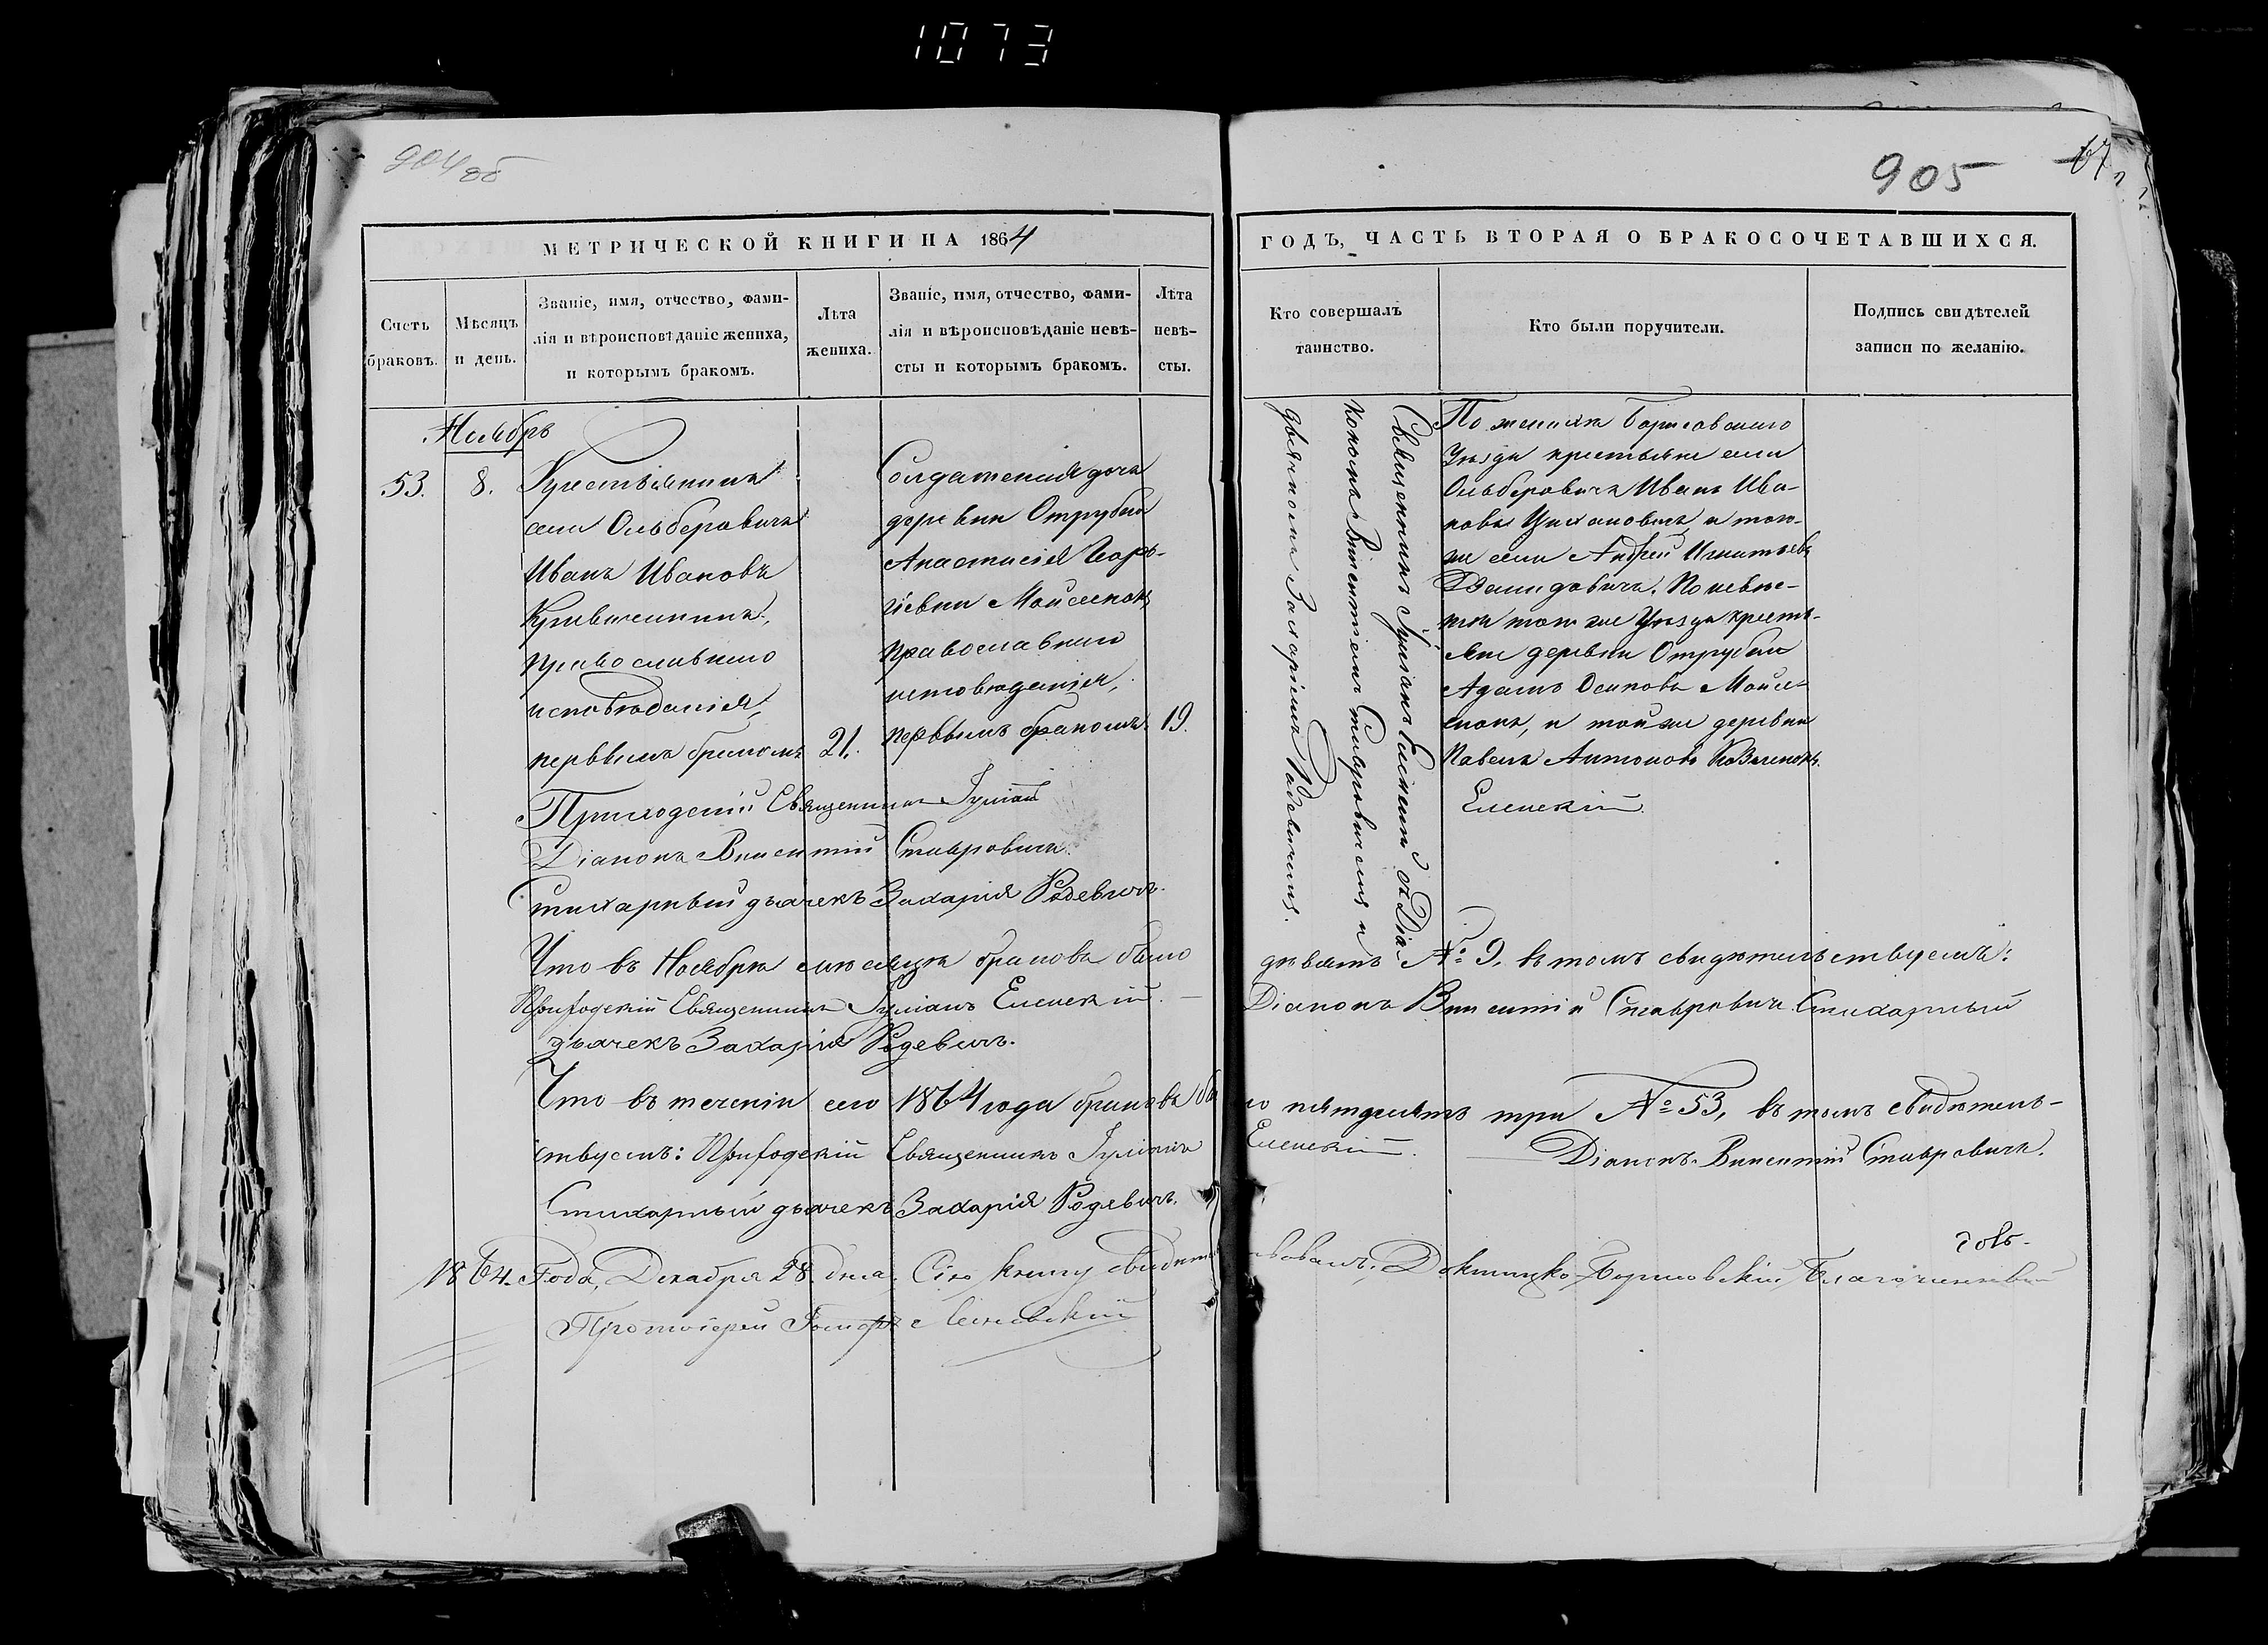 1073
904 об
905
67
МЕТРИЧЕСКОЙ КНИГИ НА 1864
ГОДЪ, ЧАСТЬ ВТОРАЯ О БРАКОСОЧЕТАВШИХСЯ.
Счетъ
браковъ.
Мѣсяцъ
и день.
Званіе, имя, отчество, фами-
лія и вѣроисповѣданіе жениха,
и которымъ бракомъ.
Лѣта
жениха.
Званіе, имя, отчество, фами-
лія и вѣроисповѣданіе невѣ-
сты и которымъ бракомъ.
Лѣта
невѣ-
сты.
Кто совершалъ
таинство.
Кто были поручители.
Подпись свидѣтелей
записи по желанію.
Ноябрь
53.
8.
Крестьянинъ
села Ольберовичъ
Иванъ Ивановъ
православнаго
исповѣданія,
первымъ бракомъ
21.
Солдатская дочь
деревни Отрубка
Анастасія Геор-
гіевна Мойсенокъ
православнаго
исповѣданія,
первымъ бракомъ.
19.
Священникъ Іуліанъ Еленскій съ Діа-
кономъ Викентіемъ Ставровичемъ и
дьячкомъ Захаріемъ Родевичемъ.
По женихѣ Борисовскаго
Уѣзда крестьяне села
Ольберовичъ Иванъ Ива-
новъ Цихановичъ и того-
же села Андрей Игнатьевъ
Демидовичъ. По невѣс-
тѣ того же Уѣзда кресть-
яне деревни Отрубка
Адамъ Осиповъ Мойсе-
енокъ, и той-же деревни
Павелъ Антоновъ Козленокъ.
Приходскій Священникъ Іуліанъ
Еленскій.
Діаконъ Викентій Ставровичъ.
Стихарный дьячекъ Захарія Родевичъ.
Что въ Ноябрѣ мѣсяцѣ браковъ было
девять № 9, въ томъ свидѣтельствуемъ:
Приходскій Священникъ Іуліанъ Еленскій. —
Діаконъ Викентій Ставровичъ. Стихарный
дьячекъ Захарія Родевичъ.
Что въ теченіи сего 1864 года браковъ бы
ло пятдесятъ три № 53, въ томъ свидѣтель-
ствуемъ: Приходскій Священникъ Іуліанъ
Еленскій.
Діаконъ Викентій Ставровичъ.
Стихарный дьячекъ Захарія Родевичъ.
1864. Года, Декабря 28. дня. Сію книгу свидѣтель
ствовалъ, Докшицко-Борисовскій Благочинный
Протоіерей